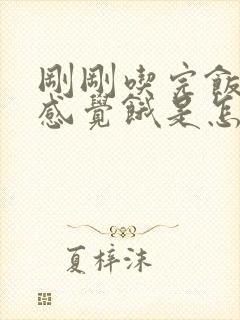 剛剛喫完飯
感覺餓是怎
夏梓沫